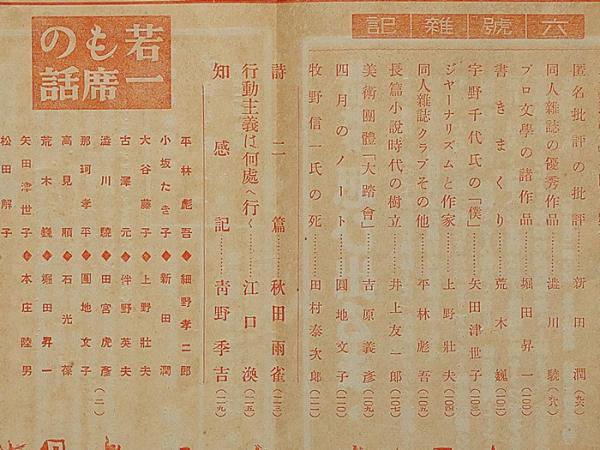 六號雜記
匿名批評の批評……新田潤(九六)
同人雜誌の優秀作品……澁川驍(九八)
プロ文學の諸作品……堀田昇一(一〇〇)
書きまくり……荒木巍(一〇二)
宇野千代氏の「僕」……矢田津世子(一〇三)
ジャーナリズムと作家……上野壯夫(一〇四)
同人雜誌クラブその他……平林彪吾(一〇五)
長篇小說時代の樹立……井上友一郎(一〇七)
美術團體「大踏會」……吉原義彥(一〇九)
四月のノート……圓地文子(一一〇)
牧野信一氏の死……田村泰次郎(一一一)
詩二篇……秋田雨雀(二三)
行動主義は何處へ行く……江口渙(二五)
知感記……靑野季吉(二九)
若一
も席
の話
平林彪吾◆細野孝二郎
小坂たき子◆新田潤
大谷藤子◆上野壯夫
古澤元◆伴野英夫
澁川驍◆田宮虎彥
那珂孝平◆圓地文子
高見順◆石光葆
荒木巍◆堀田昇一
矢田津世子◆本庄陸男
松田解子
(一)